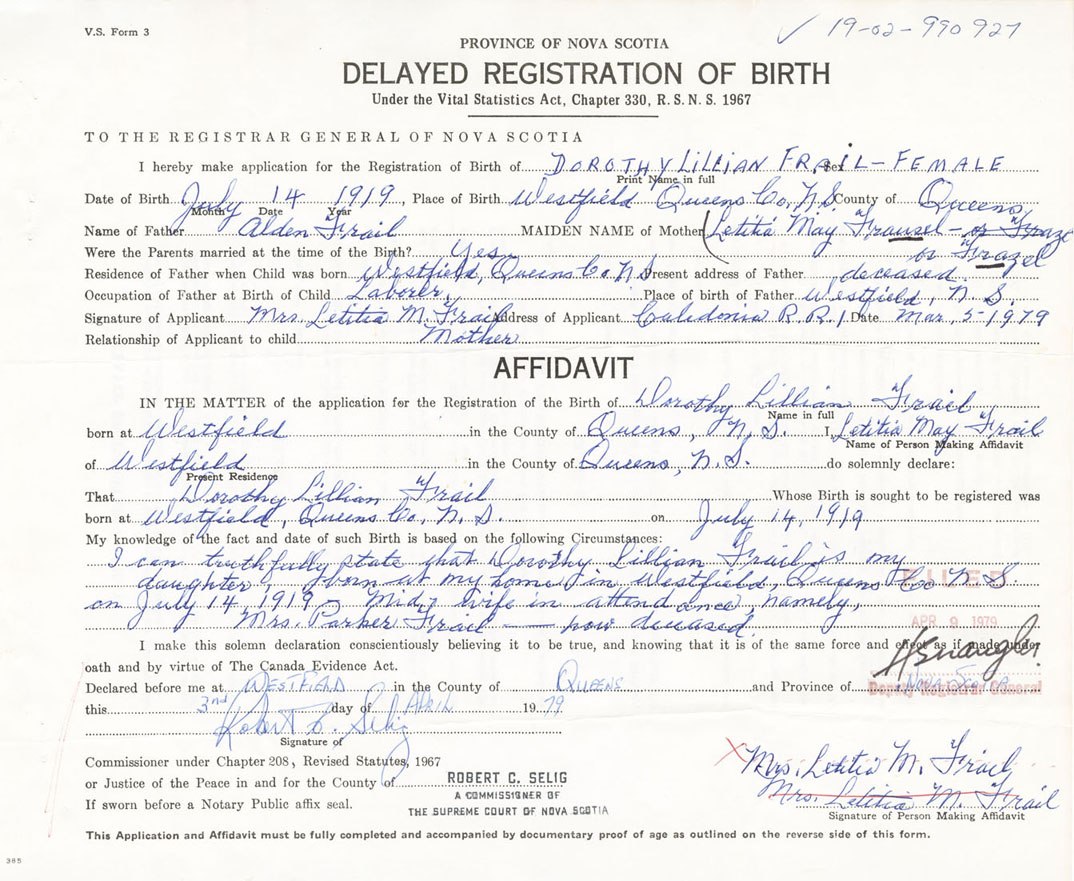 V.S. Form 3
✓ 19-02-990927
PROVINCE OF NOVA SCOTIA
DELAYED REGISTRATION OF BIRTH
Under the Vital Statistics Act, Chapter 330, R.S.N.S. 1967
TO THE REGISTRAR GENERAL OF NOVA SCOTIA
I hereby make application for the Registration of Birth of DOROTHY LILLIAN FRAIL - FEMALE
Print Name in full
Date of Birth July 14 1919, Place of Birth Westfield Queens Co, N.S. County of Queens
Month Date Year
Name of Father Alden Frail MAIDEN NAME of Mother (Letitia May Frausel - or
Were the Parents married at the time of the Birth? Yes or Frazel
Residence of Father when Child was born Westfield, Queens Co. N.S. Present address of Father deceased
Occupation of Father at Birth of Child Laborer, Place of birth of Father Westfield, N.S.
Signature of Applicant Mrs. Letitia M. Frail Address of Applicant Caledonia R.R.1 Date Mar. 5-1979
Relationship of Applicant to child Mother
AFFIDAVIT
IN THE MATTER of the application for the Registration of the Birth of Dorothy Lillian Frail
Name in full
born at Westfield in the County of Queens, N.S. I, Letitia May Frail
Name of Person Making Affidavit
of Westfield in the County of Queens, N.S. do solemnly declare:
Present Residence
That Dorothy Lillian Frail Whose Birth is sought to be registered was
born at Westfield, Queens Co, N.S. on July 14, 1919
My knowledge of the fact and date of such Birth is based on the following Circumstances:
I can truthfully state that Dorothy Lillian Frail is my
daughter, born at my home in Westfield, Queens Co N.S.
on July 14, 1919 - Mid-wife in attendance, namely,
Mrs. Parker Frail — now deceased.
FILED
APR 9 1979
I make this solemn declaration conscientiously believing it to be true, and knowing that it is of the same force and effect as if made under
oath and by virtue of The Canada Evidence Act.
Declared before me at WESTFIELD in the County of QUEENS and Province of NOVA SCOTIA
Deputy Registrar General
this 3rd day of APRIL 1979
Robert C. Selig
Signature of
Commissioner under Chapter 208, Revised Statutes, 1967
or Justice of the Peace in and for the County of
If sworn before a Notary Public affix seal.
ROBERT C. SELIG
A COMMISSIONER OF
THE SUPREME COURT OF NOVA SCOTIA
X Mrs. Letitia M. Frail
Mrs. Letitia M. Frail
Signature of Person Making Affidavit
This Application and Affidavit must be fully completed and accompanied by documentary proof of age as outlined on the reverse side of this form.
385